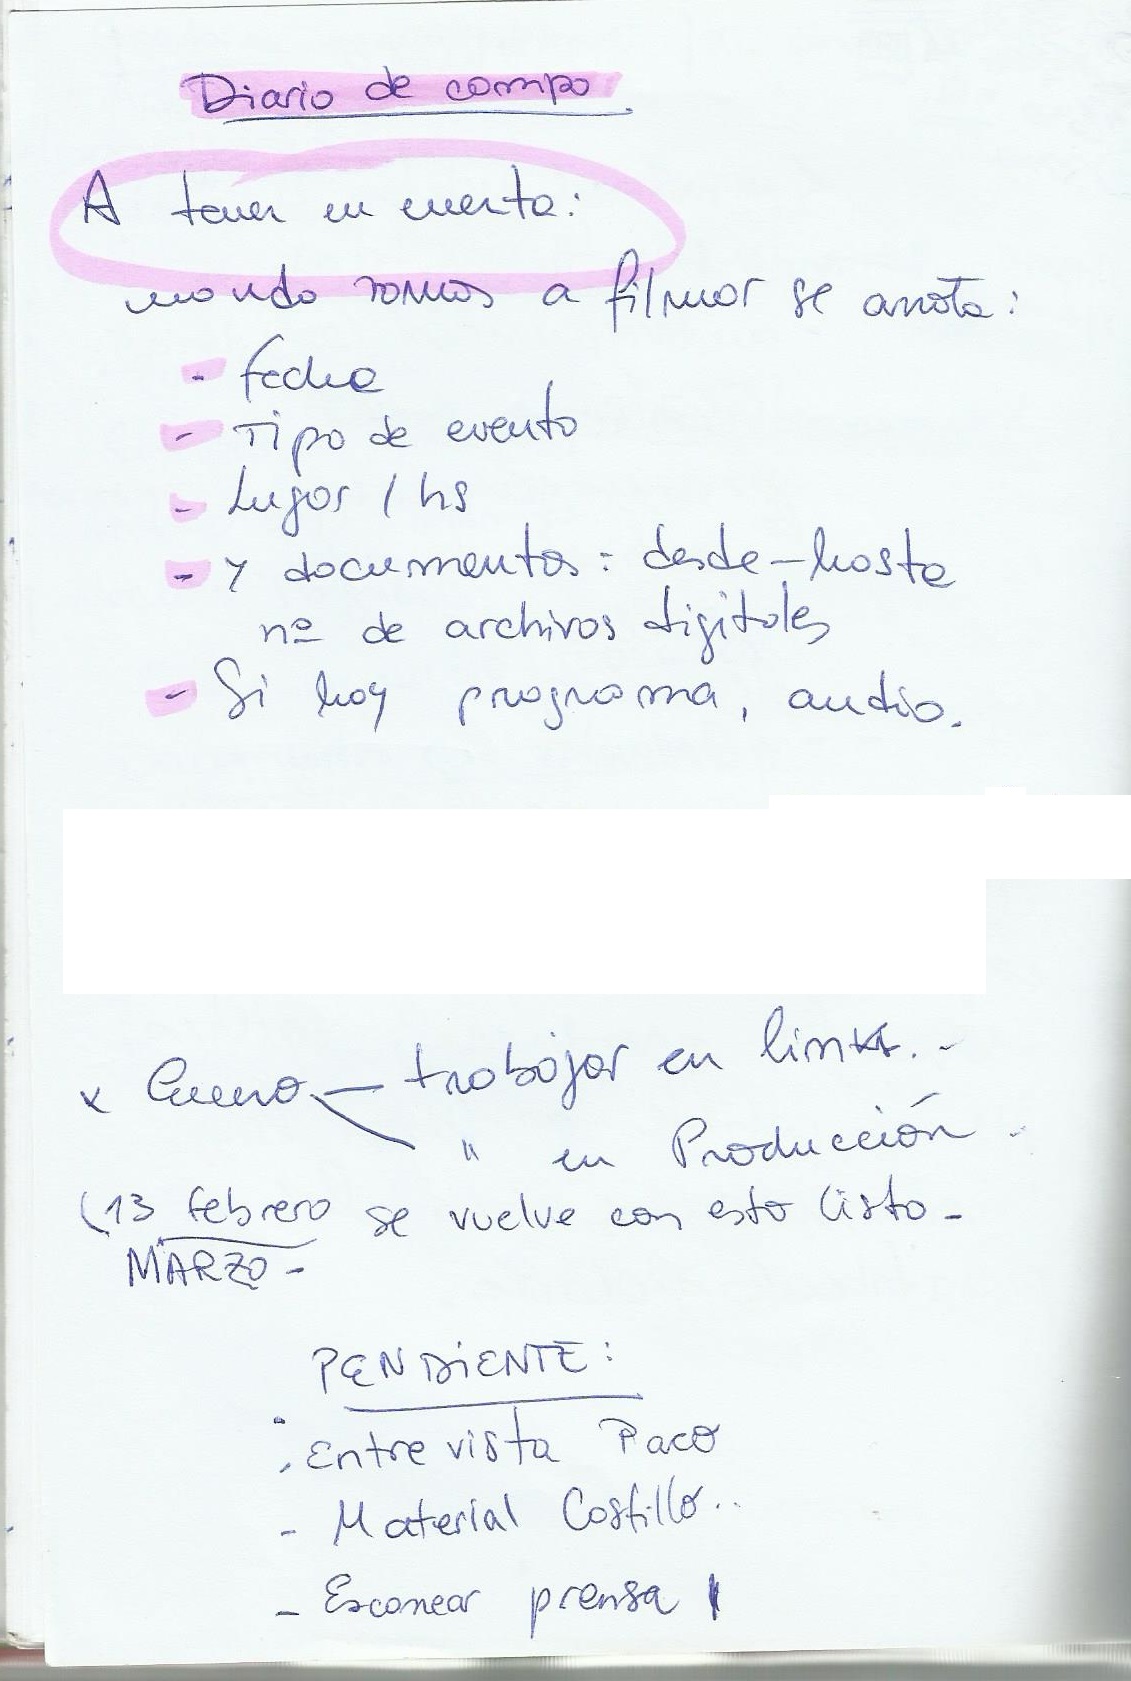 Diario de campo
A tener en cuenta:
cuando vamos a filmar se anota:
- fecha
- Tipo de evento
- Lugar / hs
- y documentos: desde - hasta
nº de archivos digitales
- Si hay programa, audio.
trabajar en
" en Producción.
(13 febrero se vuelve con esto listo -
MARZO -
PENDIENTE:
. Entrevista Paco
- Material Castillo..
- Escanear prensa